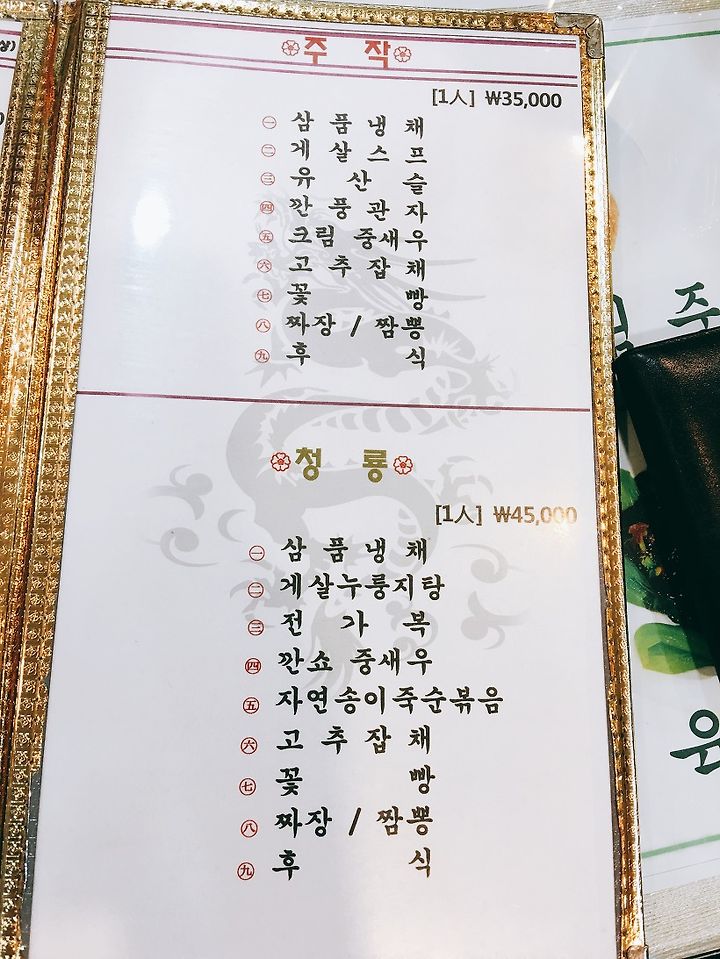 주 작
[1人] ₩35,000
㊀ 삼 품 냉 채
㊁ 게 살 스 프
㊂ 유 산 슬
㊃ 깐 풍 관 자
㊄ 크림 중새우
㊅ 고 추 잡 채
㊆ 꽃 빵
㊇ 짜장 / 짬뽕
㊈ 후 식
청 룡
[1人] ₩45,000
㊀ 삼 품 냉 채
㊁ 게살누룽지탕
㊂ 전 가 복
㊃ 깐쇼 중새우
㊄ 자연송이죽순볶음
㊅ 고 추 잡 채
㊆ 꽃 빵
㊇ 짜장 / 짬뽕
㊈ 후 식
주